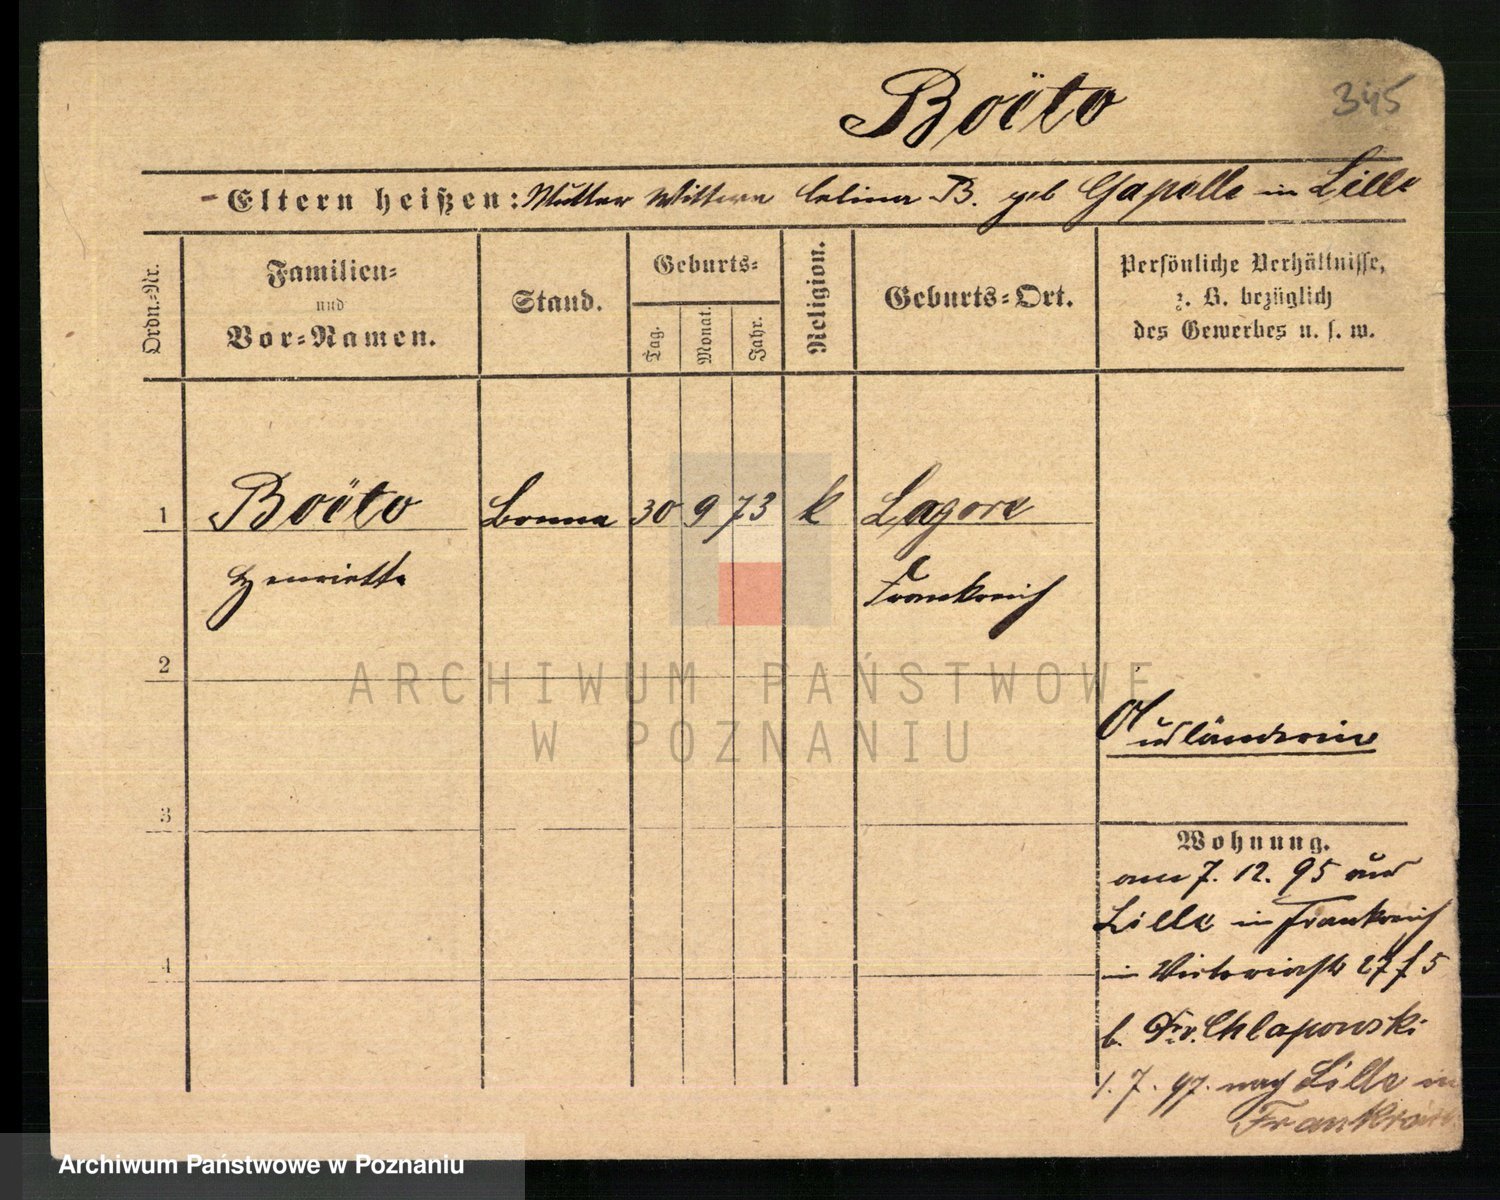 Boïto
345
Eltern heißen: Mutter Wittwe Celina B. geb Chapelle in Lille
Ordn.-Nr.
Familien-
und
Vor-Namen.
Stand.
Geburts-
Tag.
Monat.
Jahr.
Religion.
Geburts-Ort.
Persönliche Verhältnisse,
z. B. bezüglich
des Gewerbes u. s. w.
1 Boïto Bonne 30 9 73 k Lagore
Henriette Frankreich
2
Ausländerin
3
Wohnung.
am 7. 12. 95 aus
Lille in Frankreich
4
in Victoriastr 27 f 5
b. Fr. v. Chlapowski
1. 7. 97. nach Lille in
Frankreich
ARCHIWUM PAŃSTWOWE
W POZNANIU
Archiwum Państwowe w Poznaniu